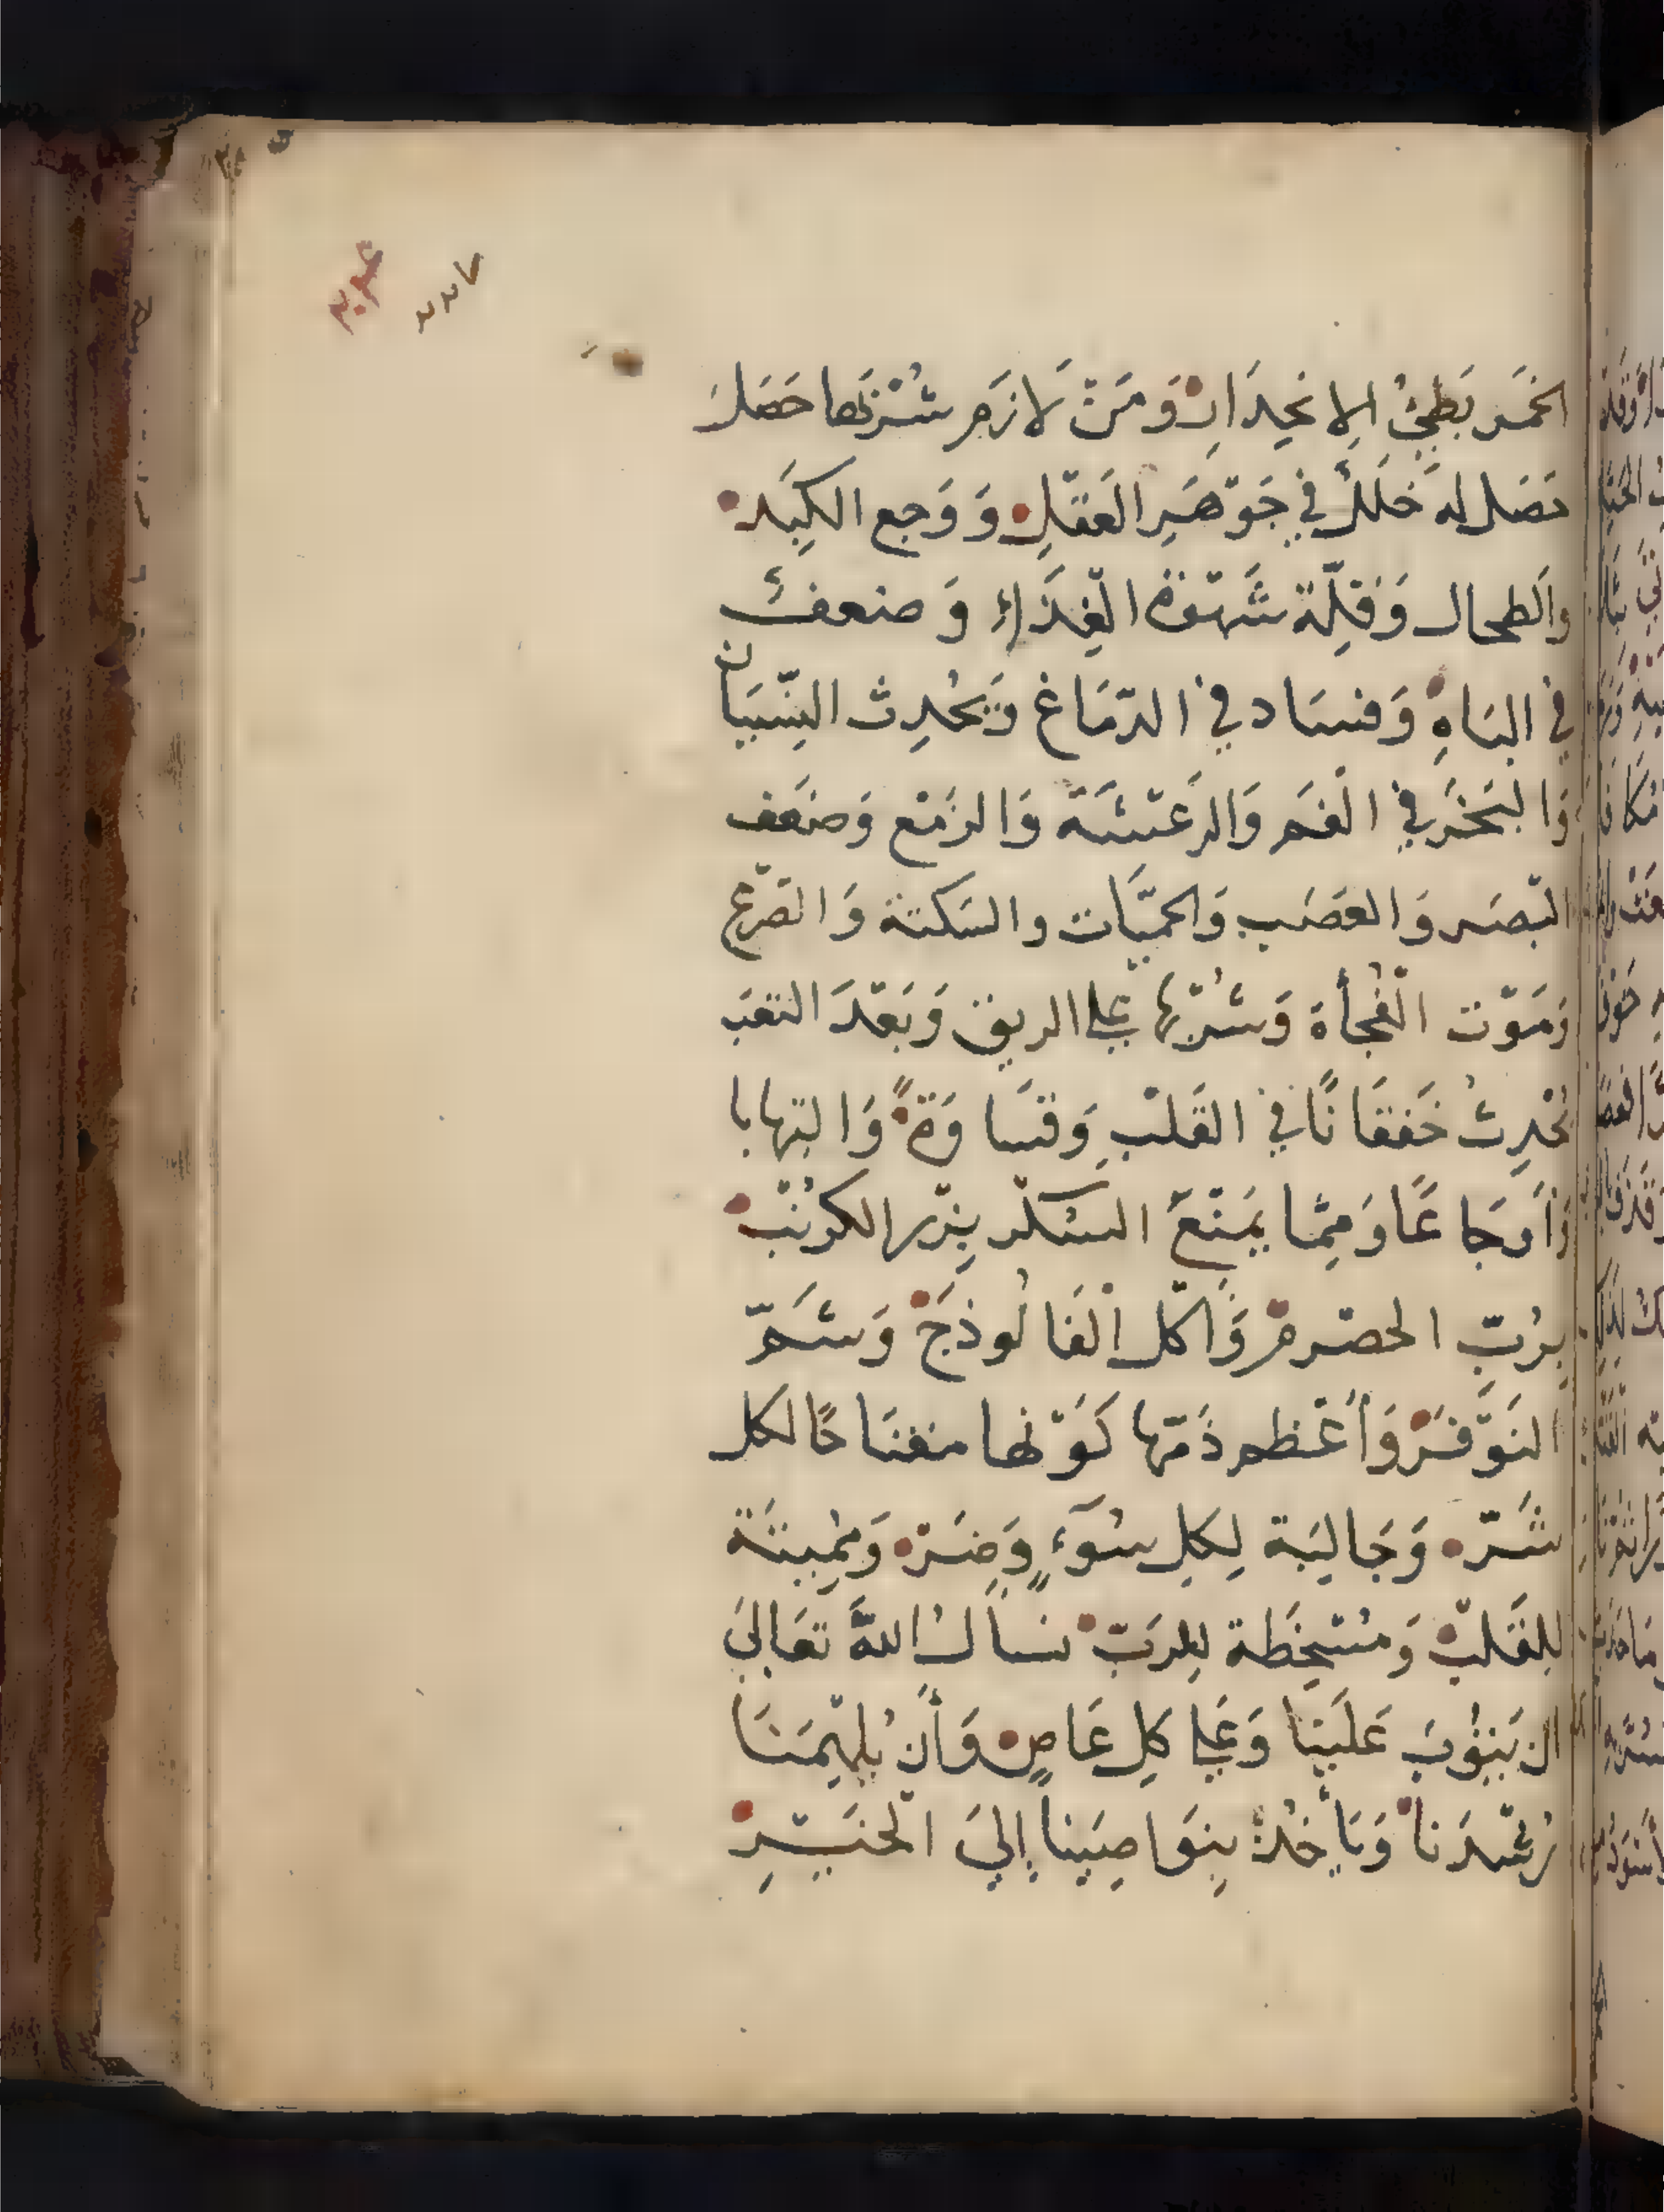 ٢٢٧
الخَمر بَطِيُ الِانحِدَارِ وَمَنْ لَازَم شُرْبَها حَصَلَ
حَصَل لهُ خَلَلٌ فِي جَوْهَرِ العَقْلِ وَوَجع الكَبِدْ
والطحال وَقِلّة شَهْوَة الغِذَاءِ وَضعفٌ
في البَاهِ وَفسَاد في الدّمَاغ وَيَحْدِث النِّسيَان
وَالبَخَر في الْفَم وَالرَعْشَة وَالزمْع وَضعَف
البْصَر وَالعَصَب وَالحمّيَات والسَكتة وَالصّرْع
وَمَوْت الْفُجأة وَشُرْبُها على الريق وَبَعْدَ التعَب
يُحْدِثُ خَفقَانًا في القَلْبِ وَقسَاوَةً وَالتهابا
وَأَوجَاعًا وَمِمّا يمَنْعَ السُكْر بِزْر الكرُنْب
بِرُبِّ الحصْرمْ وَاكل الْفَالُوذَجْ وَشَمّ
النَوْفَرْ وَأَعْظم ذَمّها كَوْنها مفتَاحًا لكل
شَرّ وَجَالِبَة لِكلِ سُوَءٍ وَضَرّ وَمُمِيتَة
لِلقَلْبْ وَمُسْخِطَة لِلرَبْ نسأل اللهَ تعَالىَ
ان يَتُوبَ عَلَيَنا وَعَلى كلِ عَاصٍ وَأَن يُلهِمَنَا
رُشْدَنا وَيَأخُذ بِنوَاصِيَنا إِلىَ الْخيَرِ